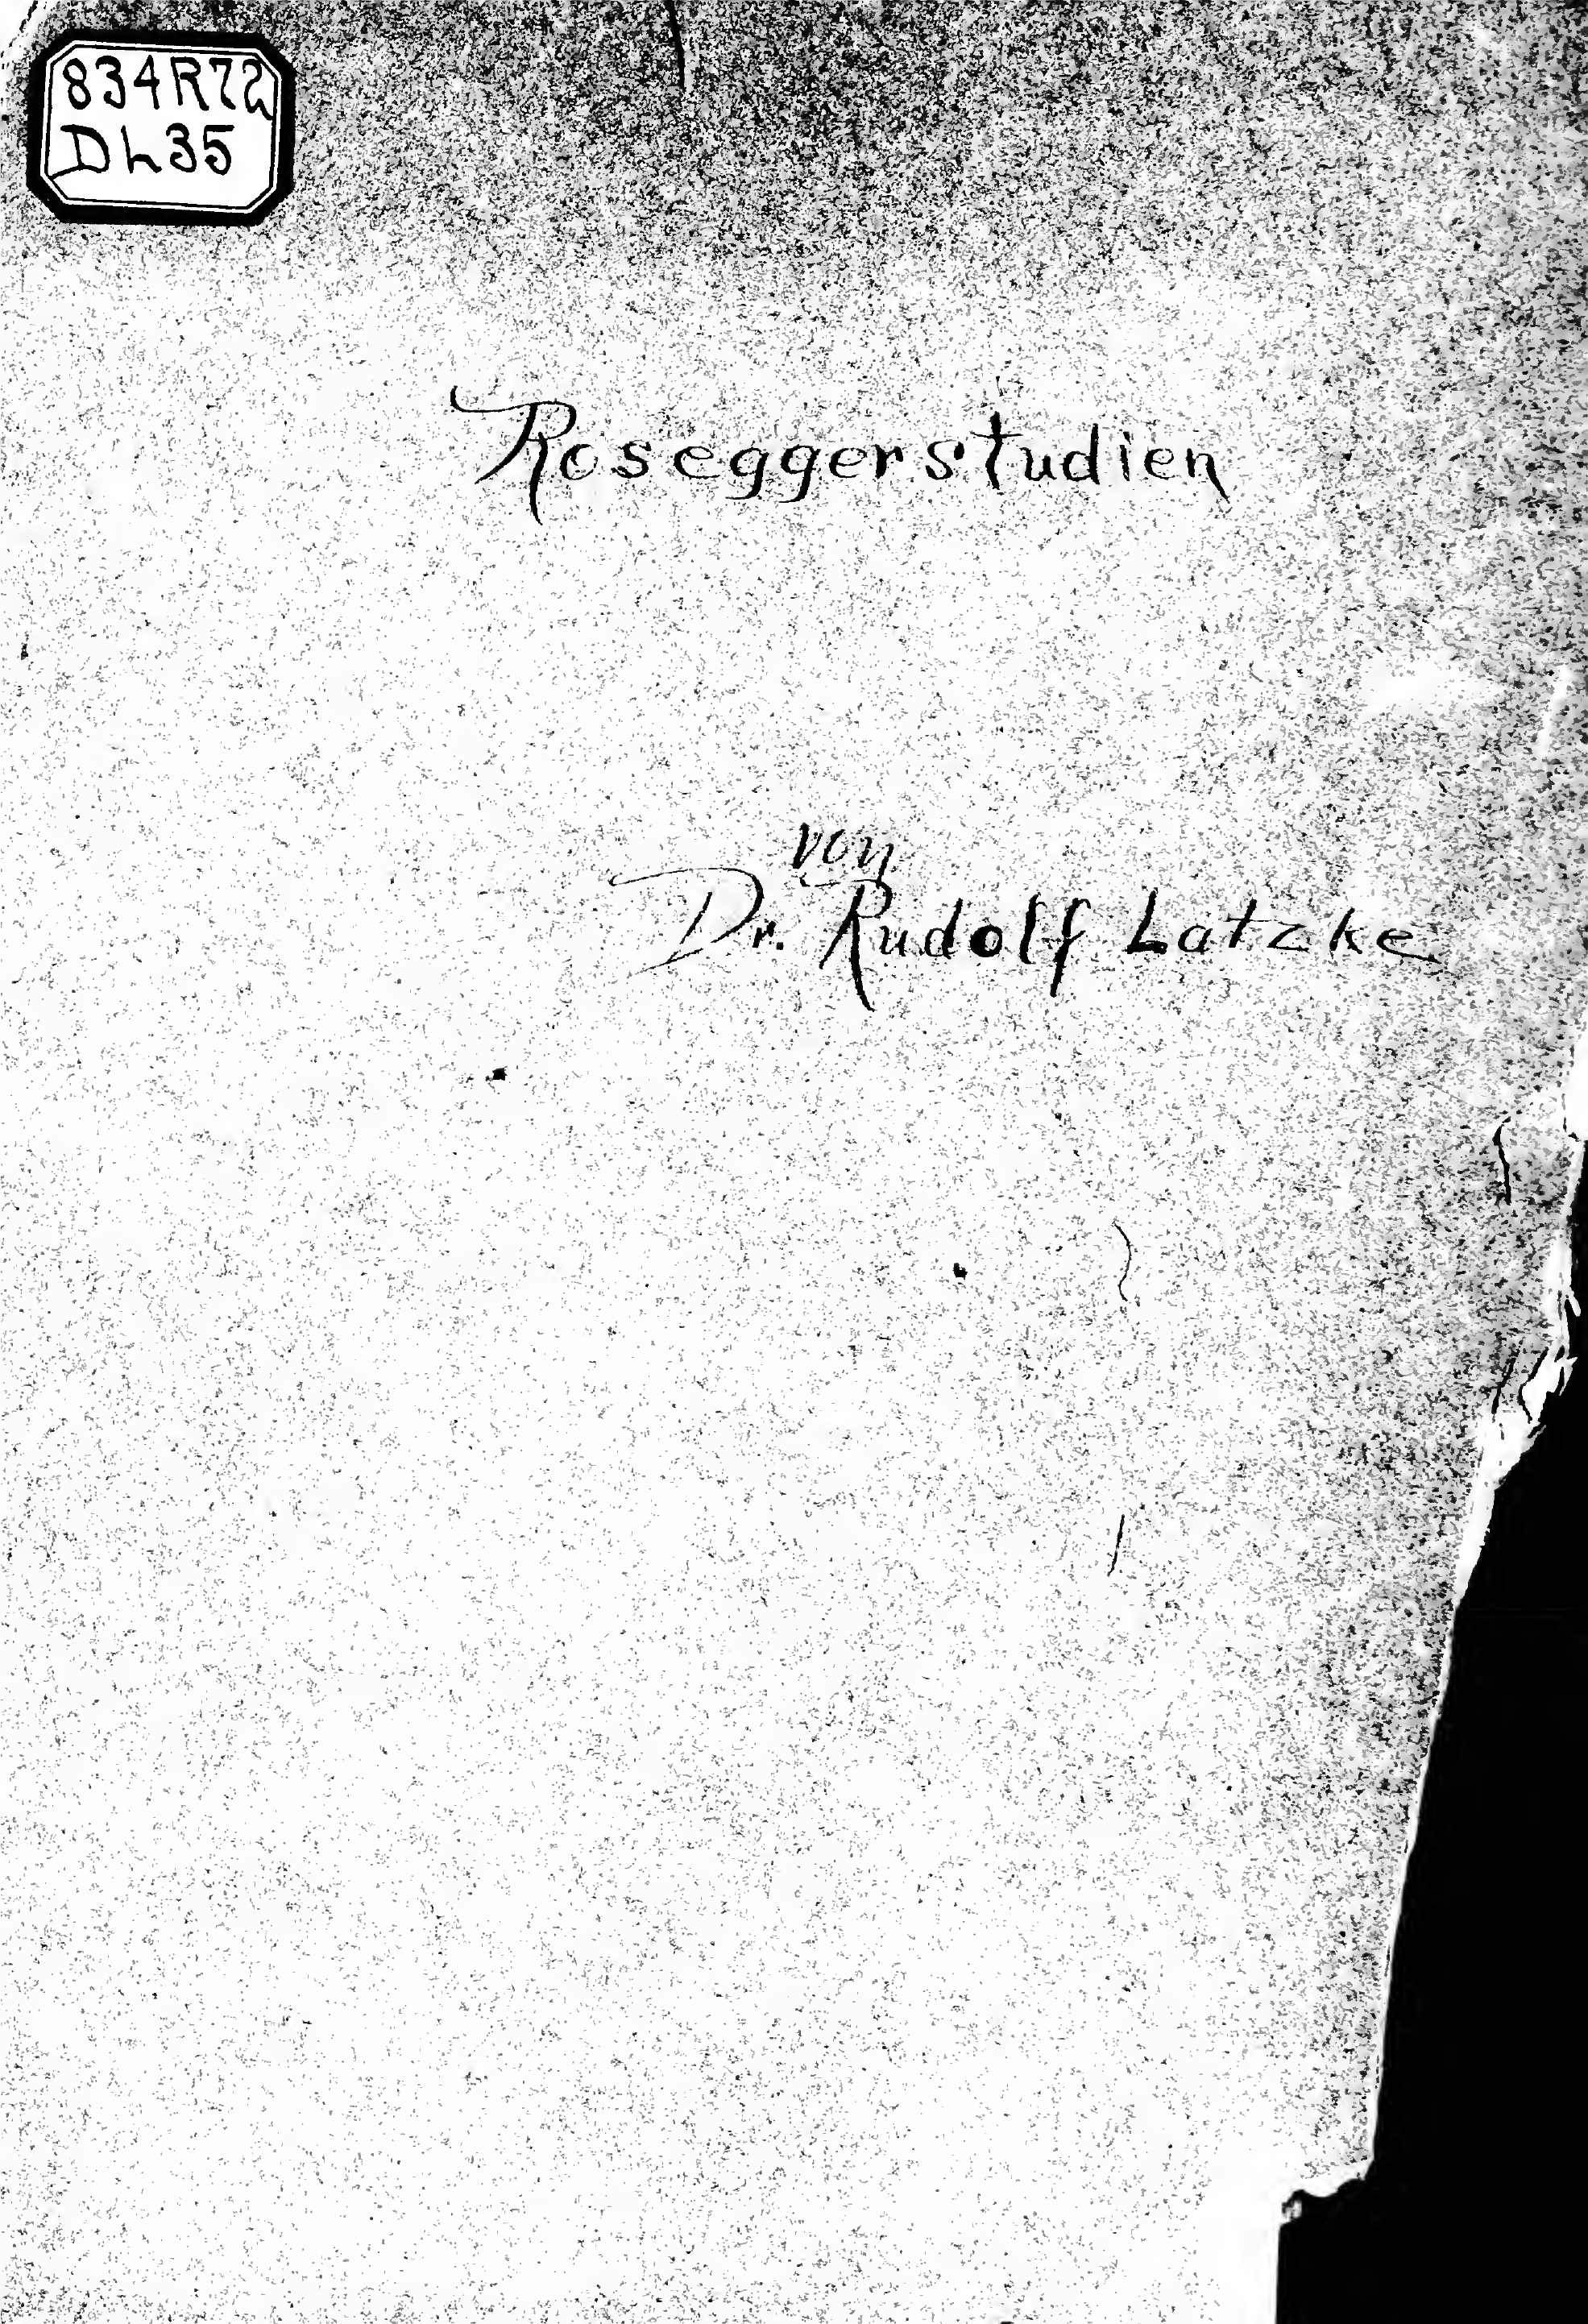 834R72
DL35
Roseggerstudien
von
Dr. Rudolf Latzke